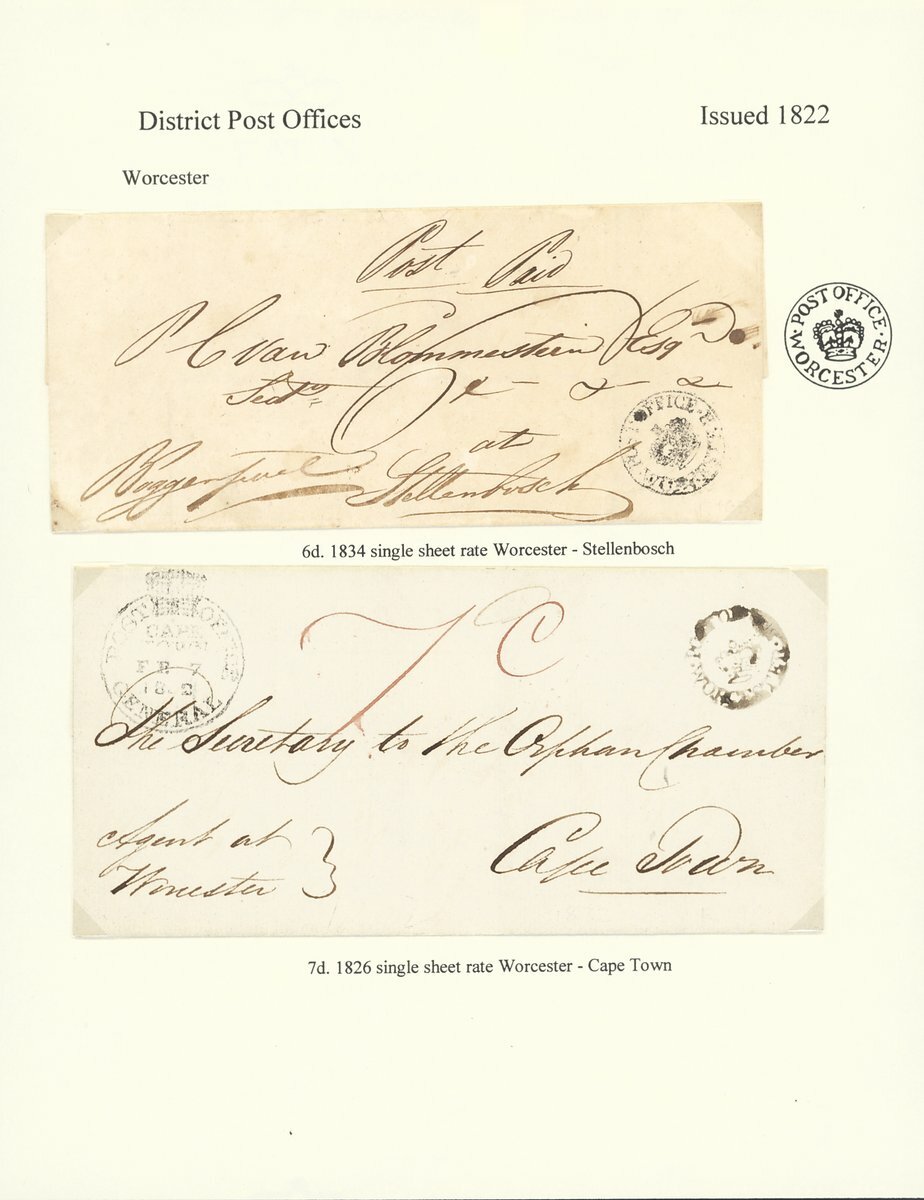 District Post Offices
Issued 1822
Worcester
Post Paid
P C van Blommestein Esqr
Secty
&c &c &c
at
Stellenbosch
POST OFFICE
WORCESTER
OFFICE
6d. 1834 single sheet rate Worcester - Stellenbosch
POST OFFICE
CAPE
TOWN
FE 7
182
GENERAL
7 C
The Secretary to the Orphan Chamber
Agent at
Worcester
Cape Town
7d. 1826 single sheet rate Worcester - Cape Town